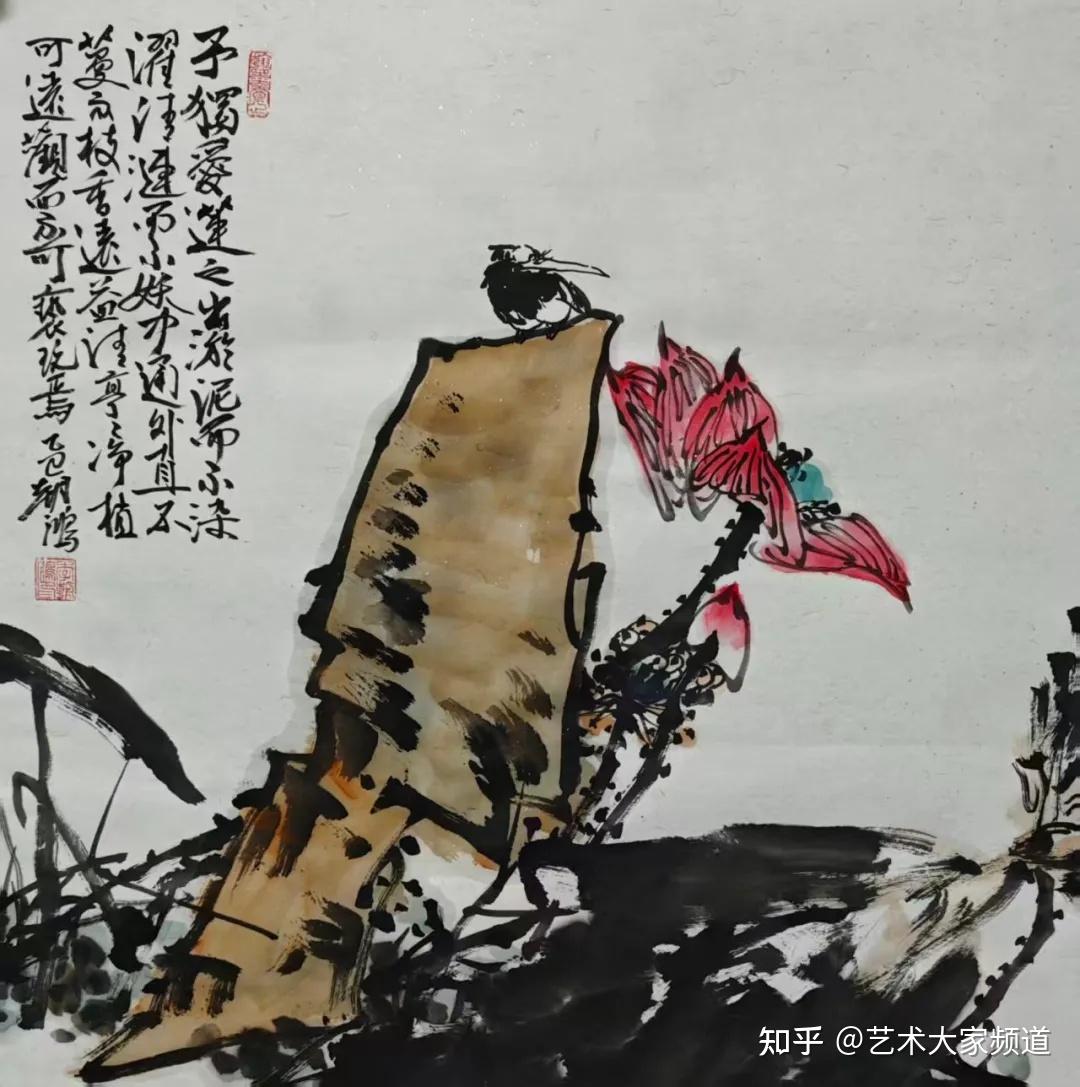 予獨愛蓮之出淤泥而不染
濯清漣而不妖中通外直不
蔓不枝香遠益清亭〻淨植
可遠觀而不可褻玩焉 乙巳朝鴻
知乎 @艺术大家频道